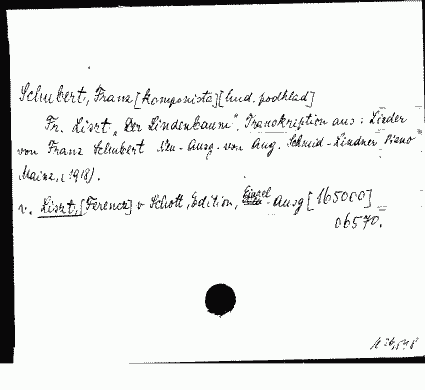 Schubert, Franz [komponista] [hud. podklad]
Fr. Liszt „Der Lindenbaum". Transkription aus: Lieder
von Franz Schubert Neu-Ausg. von Aug. Schmid-Lindner Piano
Mainz, (1918).
v. Liszt, [Ferencz] v Schott, Edition, Einzel-Ausg [165000]
06570.